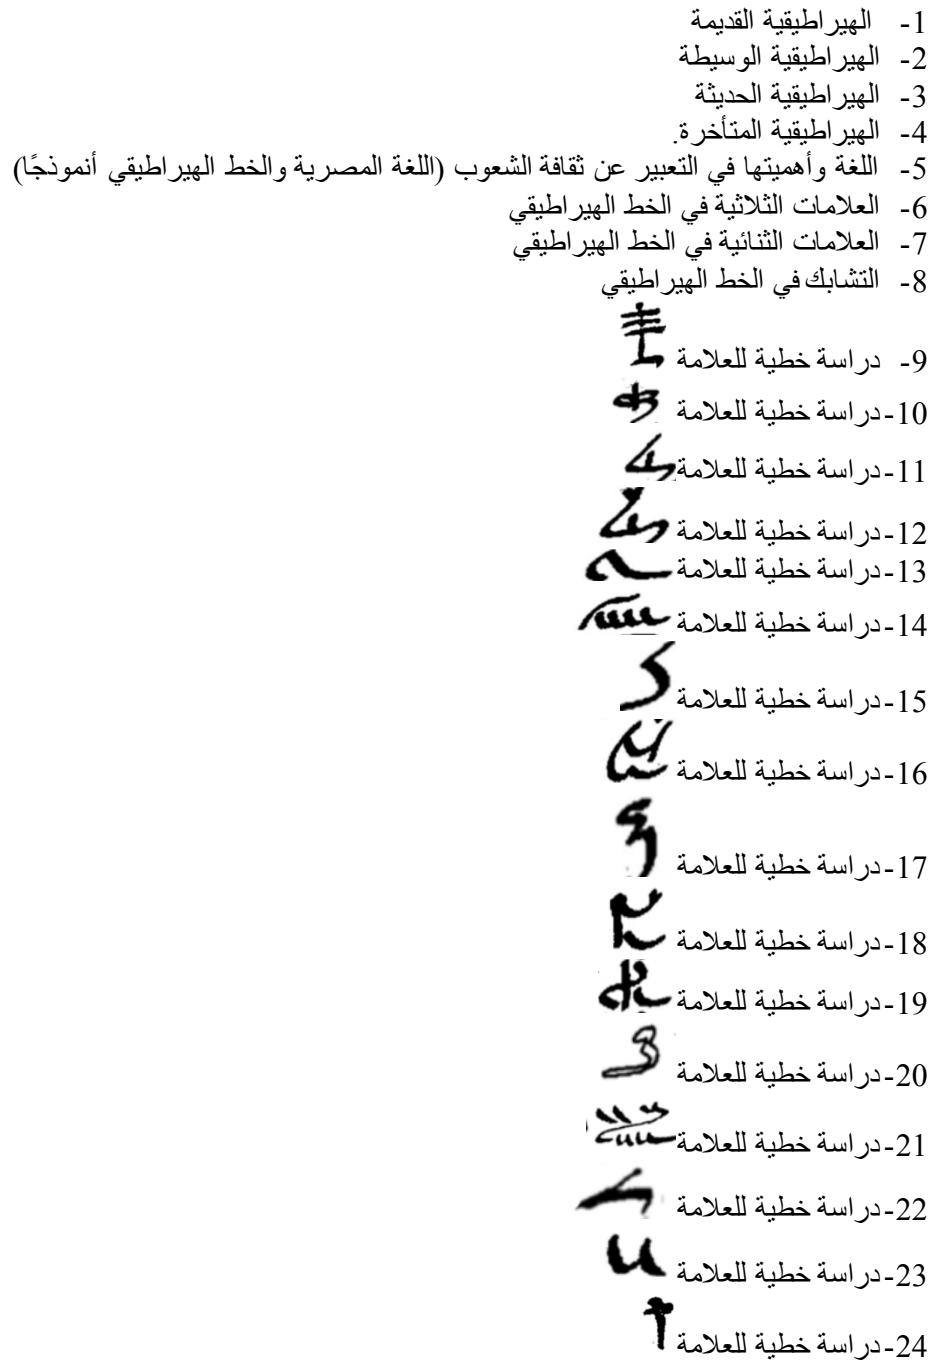 1- الهيراطيقية القديمة
2- الهيراطيقية الوسيطة
3- الهيراطيقية الحديثة
4- الهيراطيقية المتأخرة.
5- اللغة وأهميتها في التعبير عن ثقافة الشعوب (اللغة المصرية والخط الهيراطيقي أنموذجًا)
6- العلامات الثلاثية في الخط الهيراطيقي
7- العلامات الثنائية في الخط الهيراطيقي
8- التشابك في الخط الهيراطيقي
9- دراسة خطية للعلامة
10- دراسة خطية للعلامة
11- دراسة خطية للعلامة
12- دراسة خطية للعلامة
13- دراسة خطية للعلامة
14- دراسة خطية للعلامة
15- دراسة خطية للعلامة
16- دراسة خطية للعلامة
17- دراسة خطية للعلامة
18- دراسة خطية للعلامة
19- دراسة خطية للعلامة
20- دراسة خطية للعلامة
21- دراسة خطية للعلامة
22- دراسة خطية للعلامة
23- دراسة خطية للعلامة
24- دراسة خطية للعلامة